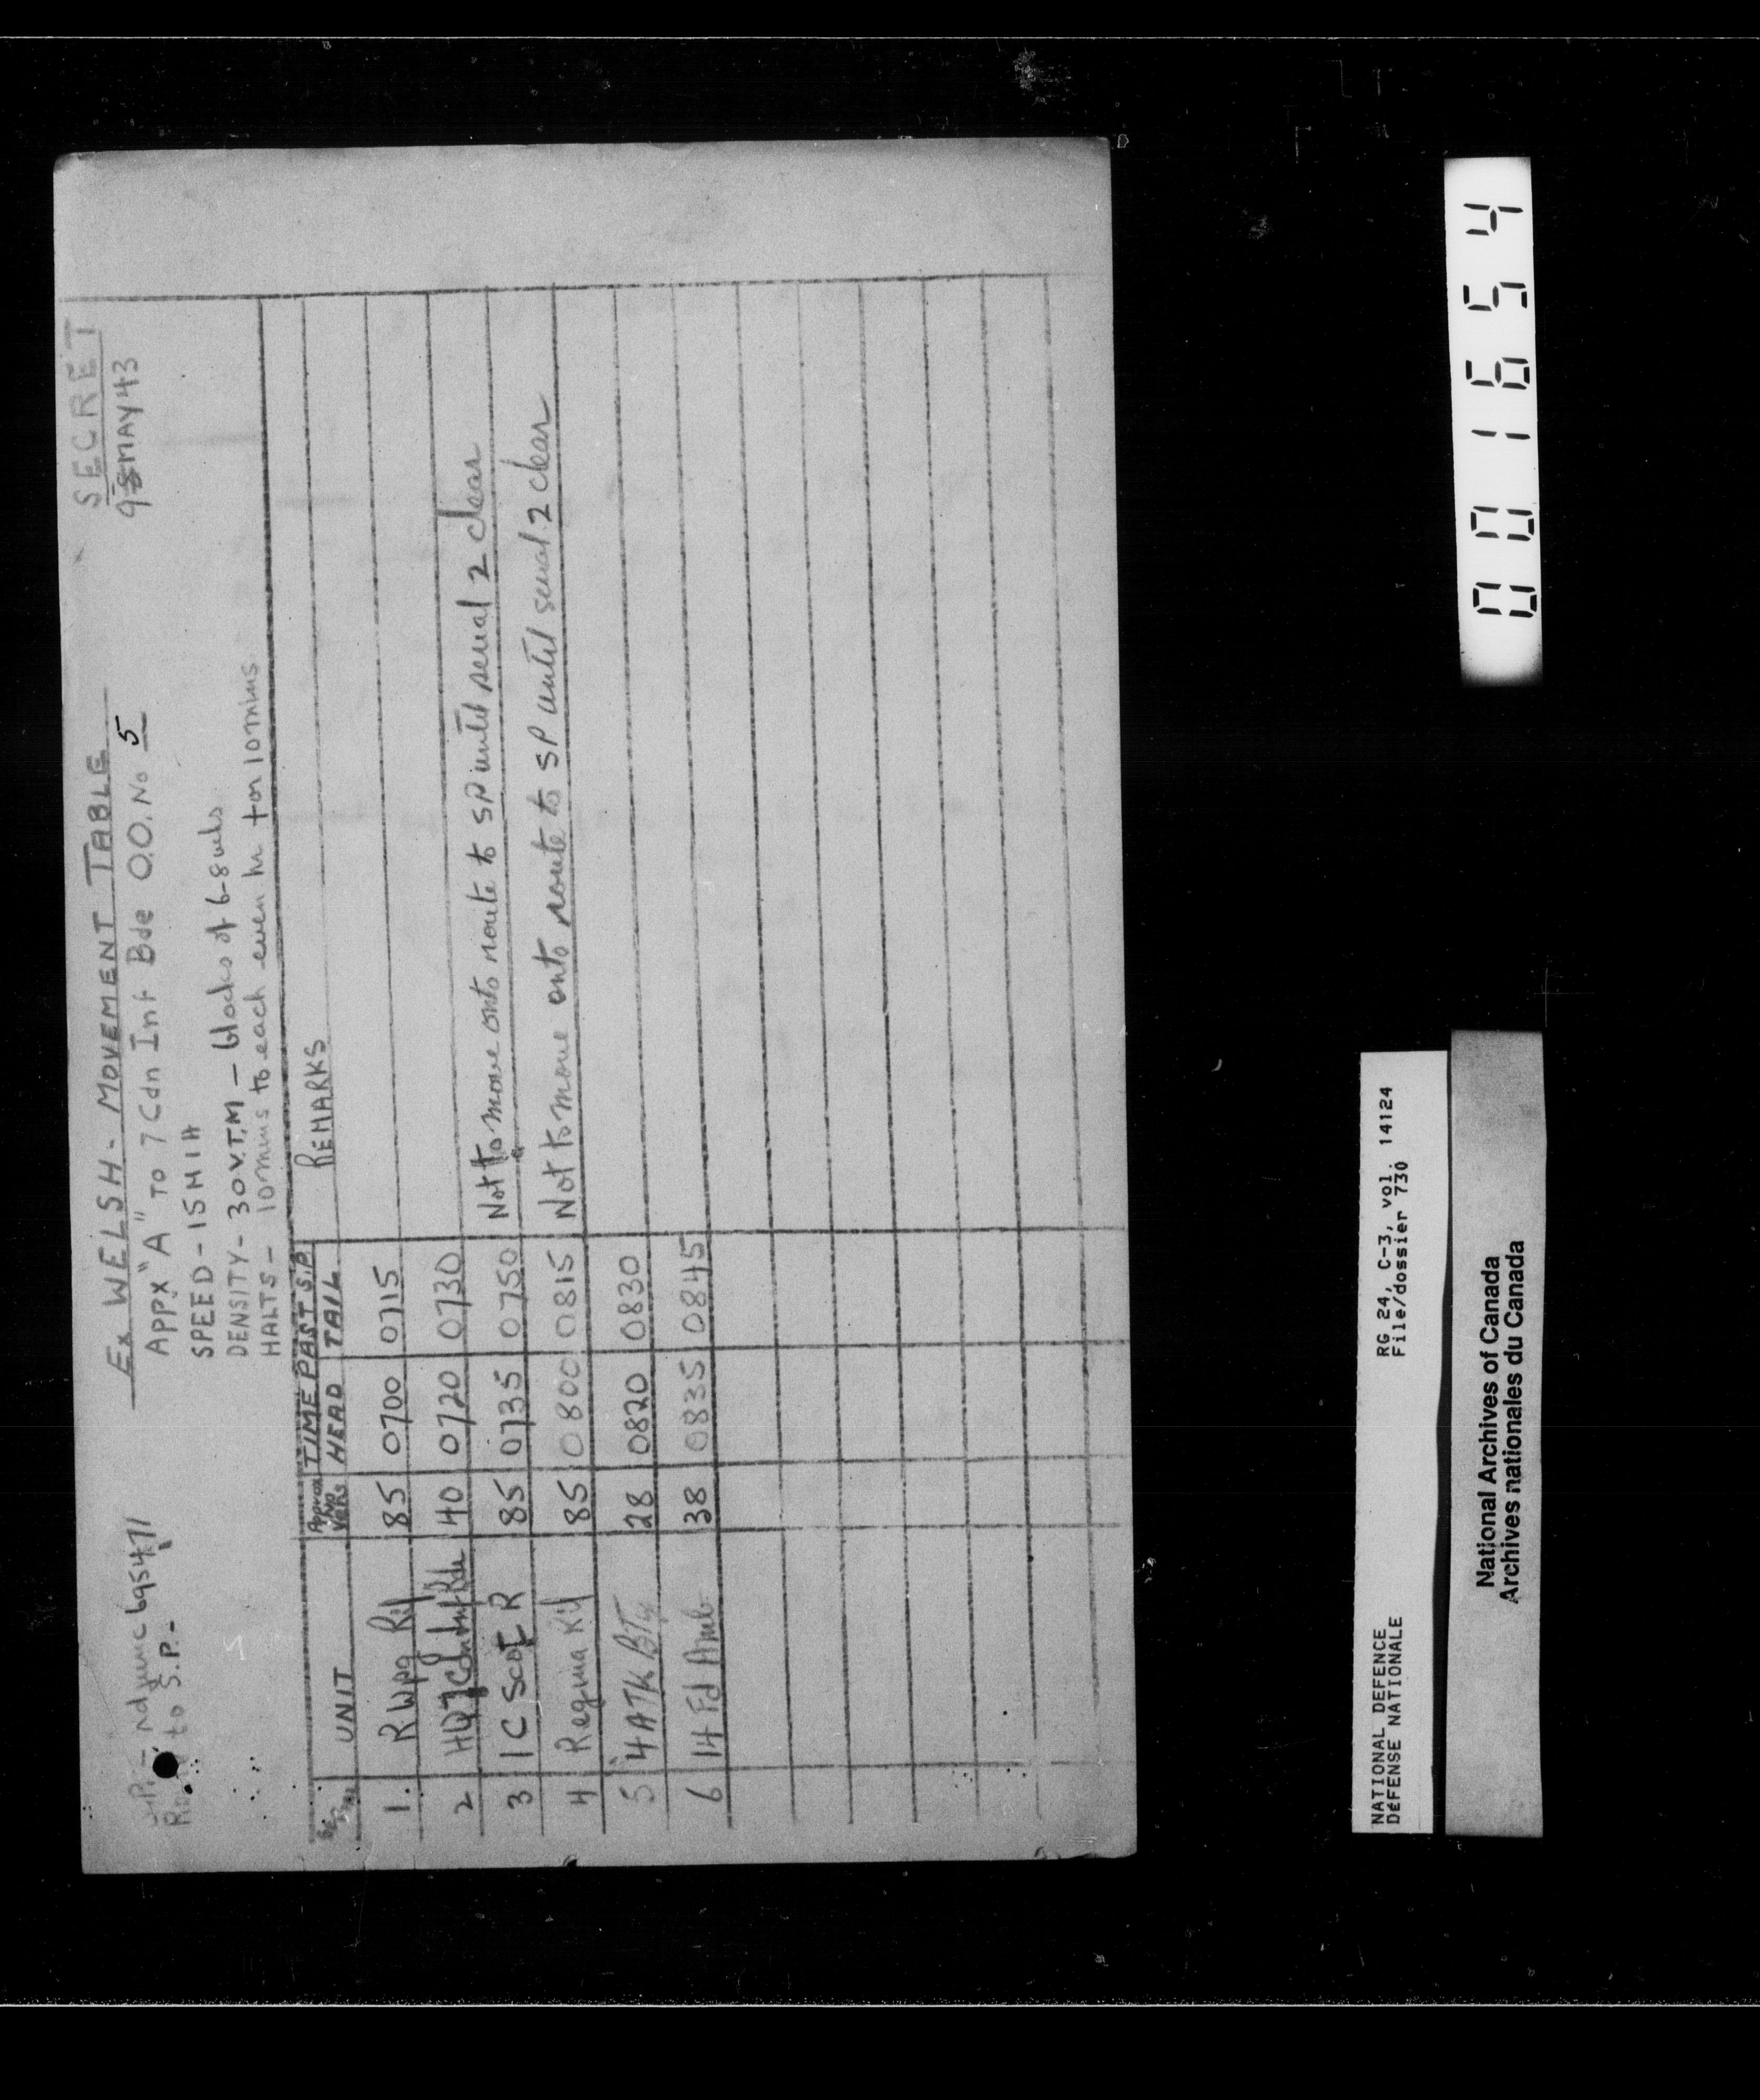 SECRET
9 8 MAY 43
Ex WELSH - MOVEMENT TABLE
APPX "A" TO 7 Cdn Inf Bde O.O. No 5
SPEED - 15 M I H
DENSITY - 30 V.T.M - blocks of 6-8 vehs
HALTS - 10 mins to each even hr for 10 mins
S.P. - rd junc 695471
to S.P. -
UNIT Approx No Vehs TIME PAST S.P. HEAD TAIL REMARKS
1. R Wpg Rif 85 0700 0715
2 HQ 7 Cdn Inf Bde 40 0720 0730
3 1 C Scot R 85 0735 0750 Not to move onto route to SP until serial 2 clear
4 Regina Rif 85 0800 0815 Not to move onto route to SP until serial 2 clear
5 4 ATK BTy 28 0820 0830
6 14 Fd Amb 38 0835 0845
001654
NATIONAL DEFENCE RG 24, C-3, vol. 14124
DÉFENSE NATIONALE File/dossier 730
National Archives of Canada
Archives nationales du Canada